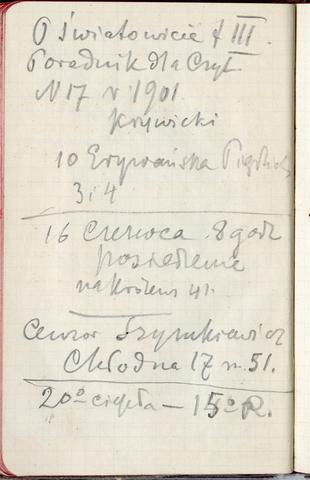 O Światowicie t III.
Poradnik dla Czyt.
N 17 r 1901.
Krywicki
10 Erywańska
3 i 4
16 Czerwca 8 godz
posiedzenie
41.
Cenzor Szymkiewicz
Chłodna 17 m. 51.
20° ciepła — 15° R.